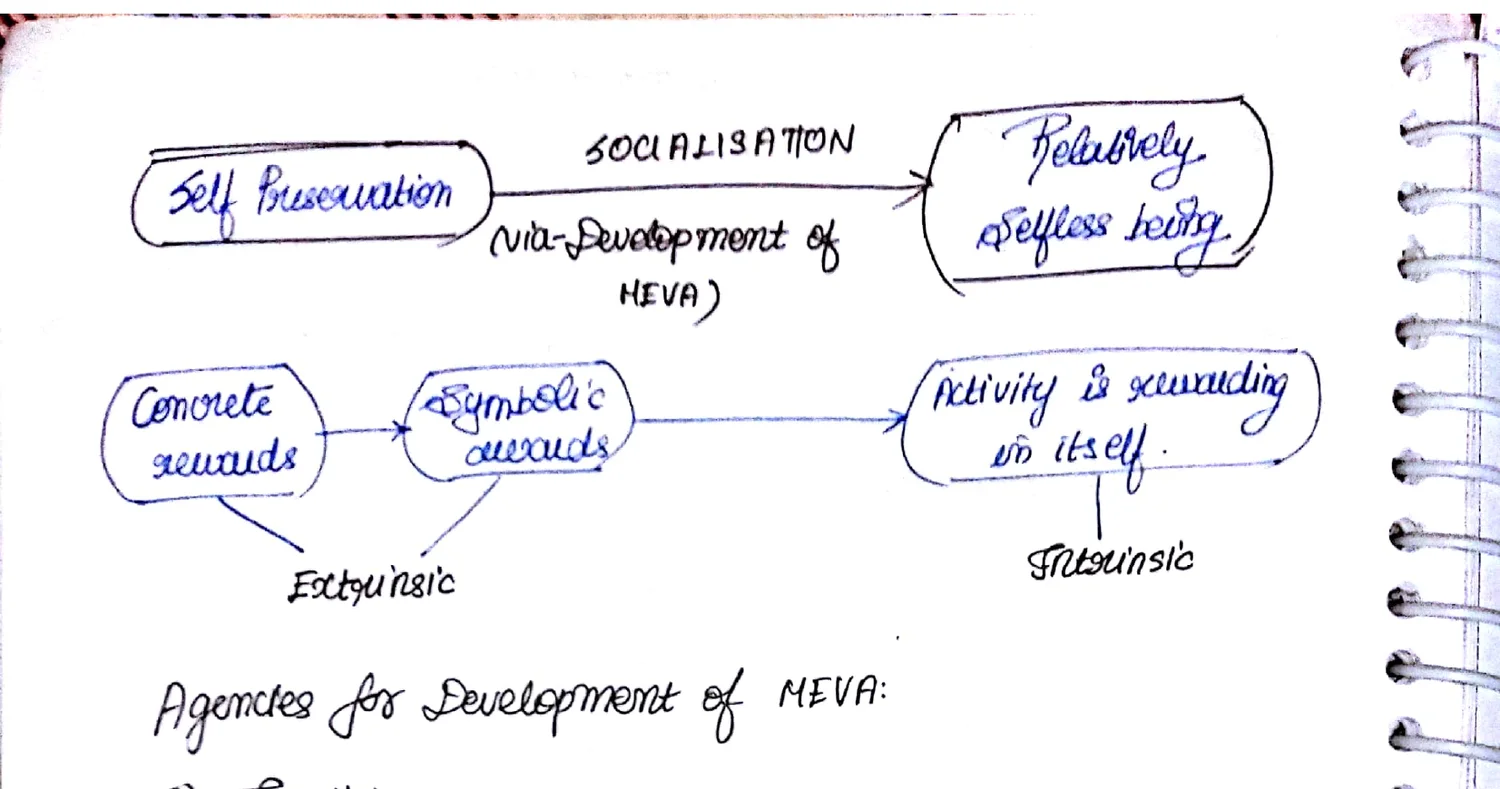 SOCIALISATION
Self Preservation
(via-Development of
MEVA)
Relatively
Selfless being.
Concrete
rewards
Symbolic
rewards
Activity is rewarding
in itself.
Extrinsic
Intrinsic
Agencies for Development of MEVA: